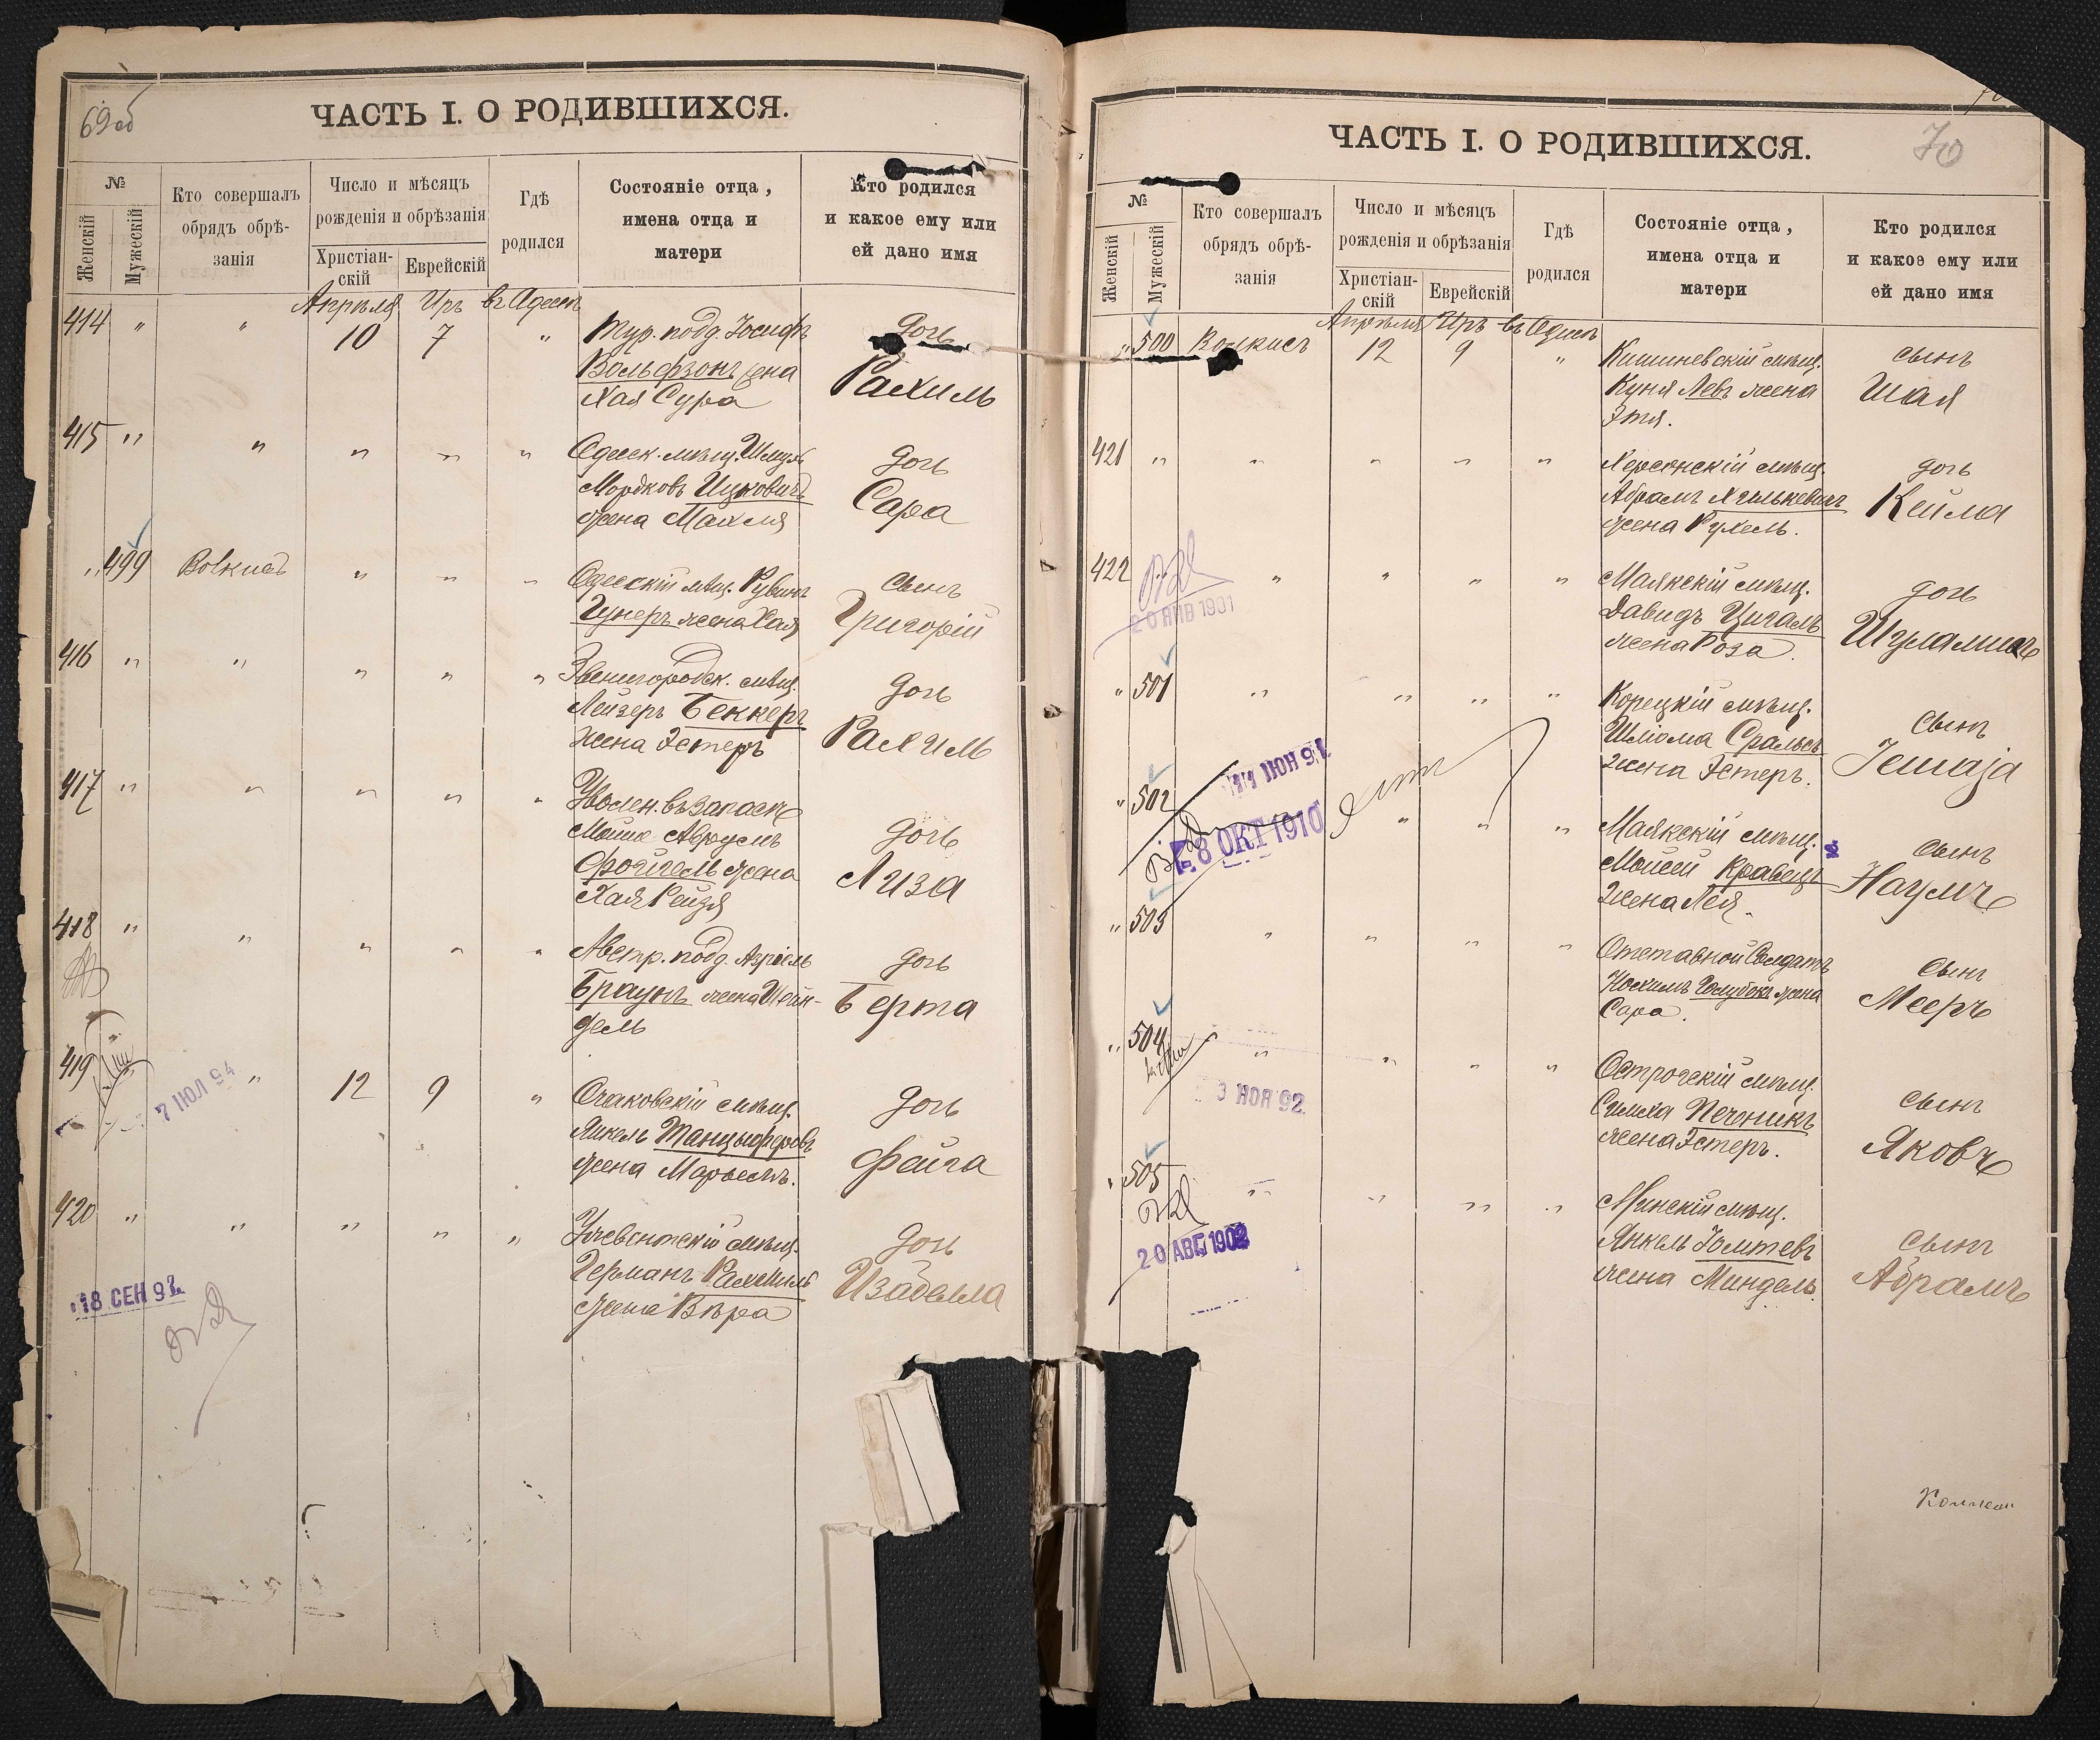 69об
ЧАСТЬ I. О РОДИВШИХСЯ.
№
Женскій
Мужескій
Кто совершалъ
обрядъ обрѣ-
занія
Число и мѣсяцъ
рожденія и обрѣзанія
Христіан-
скій
Еврейскій
Гдѣ
родился
Состояніе отца,
имена отца и
матери
Кто родился
и какое ему или
ей дано имя
Апрѣля Иръ въ Одессѣ
414 " " 10 7 " Тур. подд. Іосифъ дочь
Вольфзонъ жена Рахиль
Хая Сура
415 " " " " " Одесск. мѣщ. дочь
Мордковъ Ицковичъ Сара
жена Махля
" 499 Волкисъ " " " Одесскій мѣщ. Рувинъ сынъ
жена Хая Григорій
416 " " " " " Звенигородск. мѣщ. дочь
Лейзеръ Беккеръ Рахиль
жена Эстеръ
417 " " " " " Уволен. въ запасъ
Мошко Аврумъ дочь
жена Лиза
Хая Рейзя
418 " " " " " Австр. подд. Азріель дочь
Браунъ жена Шейн- Берта
дель
419 " 12 9 " Очаковскій мѣщ. дочь
7 ЮЛ 94
Янкель Фейга
жена Марьемъ.
420 " " " " " мѣщ. дочь
Германъ Изабелла
жена Вѣра
18 СЕН 92
70
ЧАСТЬ I. О РОДИВШИХСЯ.
№
Женскій
Мужескій
Кто совершалъ
обрядъ обрѣ-
занія
Число и мѣсяцъ
рожденія и обрѣзанія
Христіан-
скій
Еврейскій
Гдѣ
родился
Состояніе отца,
имена отца и
матери
Кто родился
и какое ему или
ей дано имя
Апрѣля Иръ въ Одессѣ
" 500 Волкисъ 12 9 " Кишиневскій мѣщ. сынъ
Куня Левъ жена Шая
Этя.
421 " " " " " Херсонскій мѣщ. дочь
Абрамъ Кейла
жена Рухель.
422 " " " " " Маякскій мѣщ. дочь
20 ЯНВ 1901
Давидъ Цигаль
жена Роза.
" 501 " " " " Корецкій мѣщ. сынъ
Шліома
жена Эстеръ.
11 ІЮН 91
" 502 " " " Маякскій мѣщ. сынъ
8 ОКТ 1910
Моисей Кравецъ Наумъ
жена Лея.
" 503 " " " " Отставной Солдатъ сынъ
жена Мееръ
Сара.
" 504 " " " " Острогскій мѣщ. сынъ
3 НОЯ 92
Симха Печеникъ Яковъ
жена Эстеръ.
" 505 " " " " Минскій мѣщ. сынъ
20 АВГ 1902
Янкель Абрамъ
жена Миндель